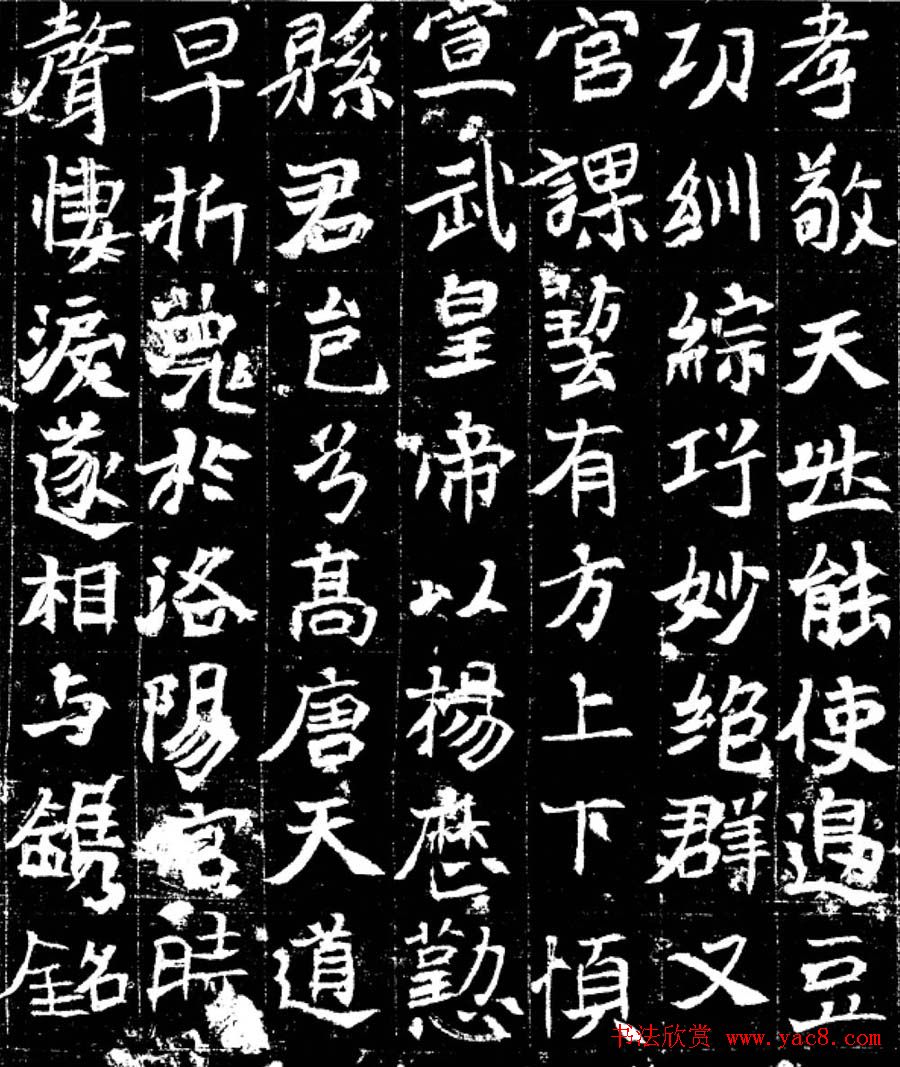 孝敬天能使邊豆
功紃綜巧妙絕群又
宮課藝有方上下順
宣武皇帝以楊歷懃
縣君邑号高唐天道
早折薨於洛陽宮時
聲悽淚遂相与鐫銘
书法欣赏 www.yac8.com